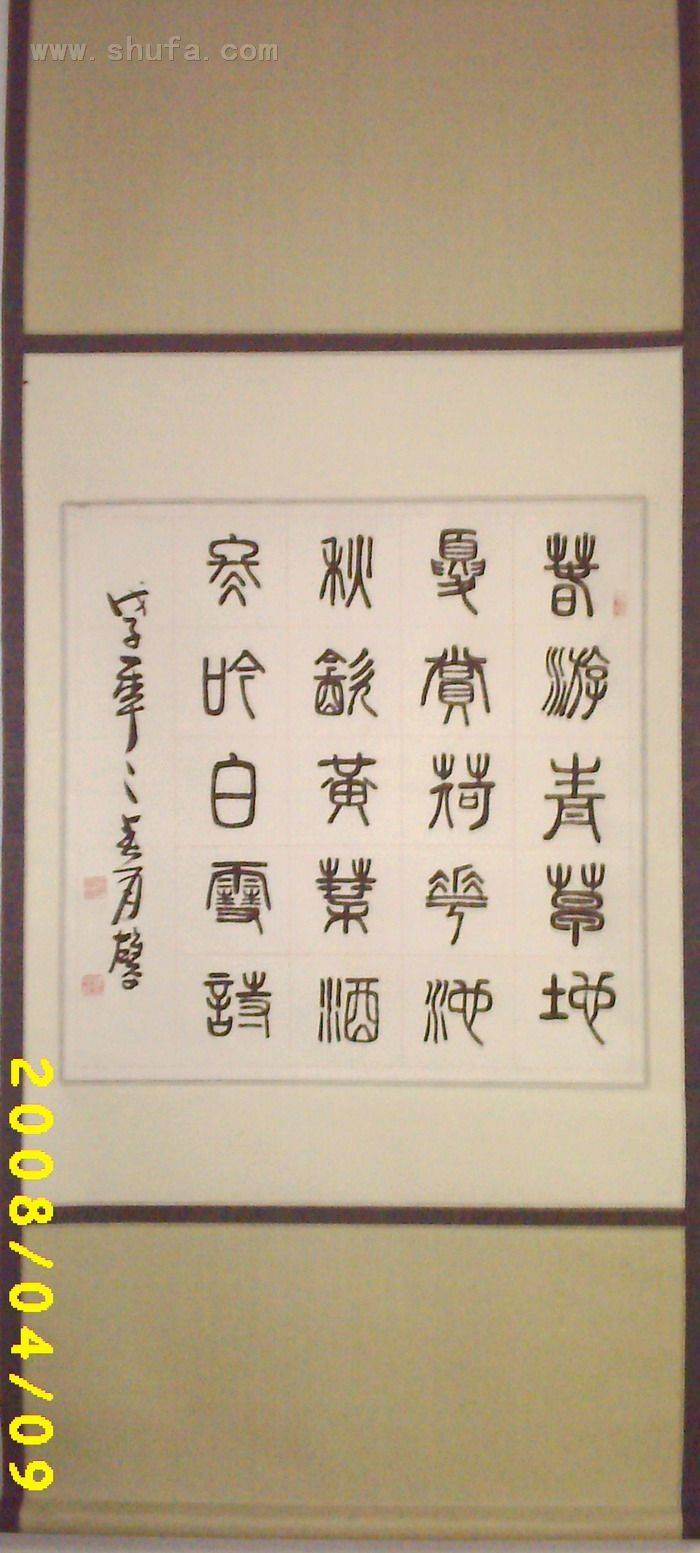 www.shufa.com
春游青草地
夏賞荷花池
秋飲黃葉酒
冬吟白雪詩
戊子年之春月
2008/04/09